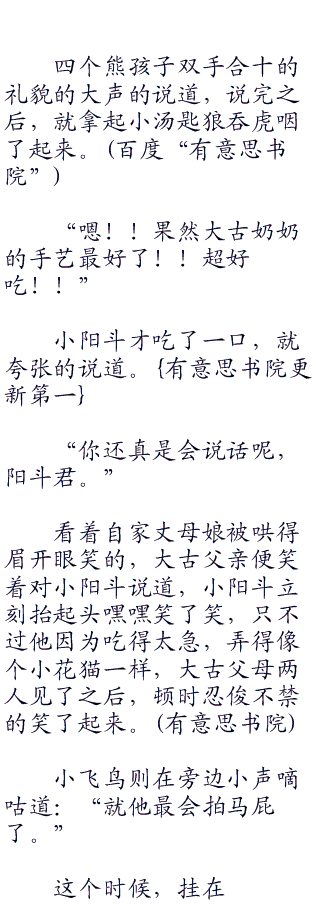 四个熊孩子双手合十的
礼貌的大声的说道，说完之
后，就拿起小汤匙狼吞虎咽
了起来。(百度“有意思书
院”)
“嗯！！果然大古奶奶
的手艺最好了！！超好
吃！！”
小阳斗才吃了一口，就
夸张的说道。{有意思书院更
新第一}
“你还真是会说话呢，
阳斗君。”
看着自家丈母娘被哄得
眉开眼笑的，大古父亲便笑
着对小阳斗说道，小阳斗立
刻抬起头嘿嘿笑了笑，只不
过他因为吃得太急，弄得像
个小花猫一样，大古父母两
人见了之后，顿时忍俊不禁
的笑了起来。(有意思书院)
小飞鸟则在旁边小声嘀
咕道：“就他最会拍马屁
了。”
这个时候，挂在